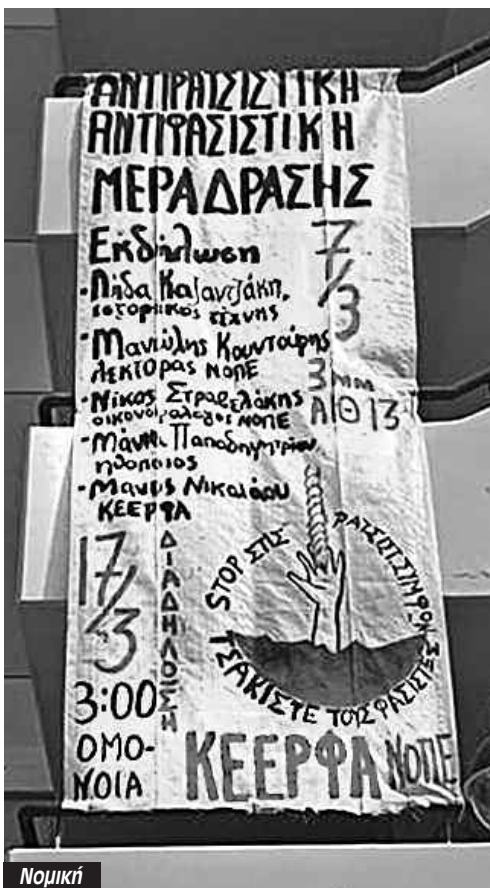 ΑΝΤΙΡΑΤΣΙΣΤΙΚΗ
ΑΝΤΙΦΑΣΙΣΤΙΚΗ
ΜΕΡΑ ΔΡΑΣΗΣ
Εκδήλωση 7/3
· Λήδα Καζαντζάκη,
ιστορικός τέχνης
· Μανώλης
λέκτορας ΝΟΠΕ
· Νίκος Στραβελάκης
οικονομολόγος ΝΟΠΕ
3 μμ
ΑΙΘ 13
· Παπαδημητρίου
ηθοποιός
· Μάνος Νικολάου
ΚΕΕΡΦΑ
17/3
ΔΙΑΔΗΛΟΣΗ
3:00
ΟΜΟ-
ΝΟΙΑ
STOP ΣΤΙΣ
ΤΣΑΚΙΣΤΕ ΤΟΥΣ ΦΑΣΙΣΤΕΣ
ΚΕΕΡΦΑ ΝΟΠΕ
Νομική